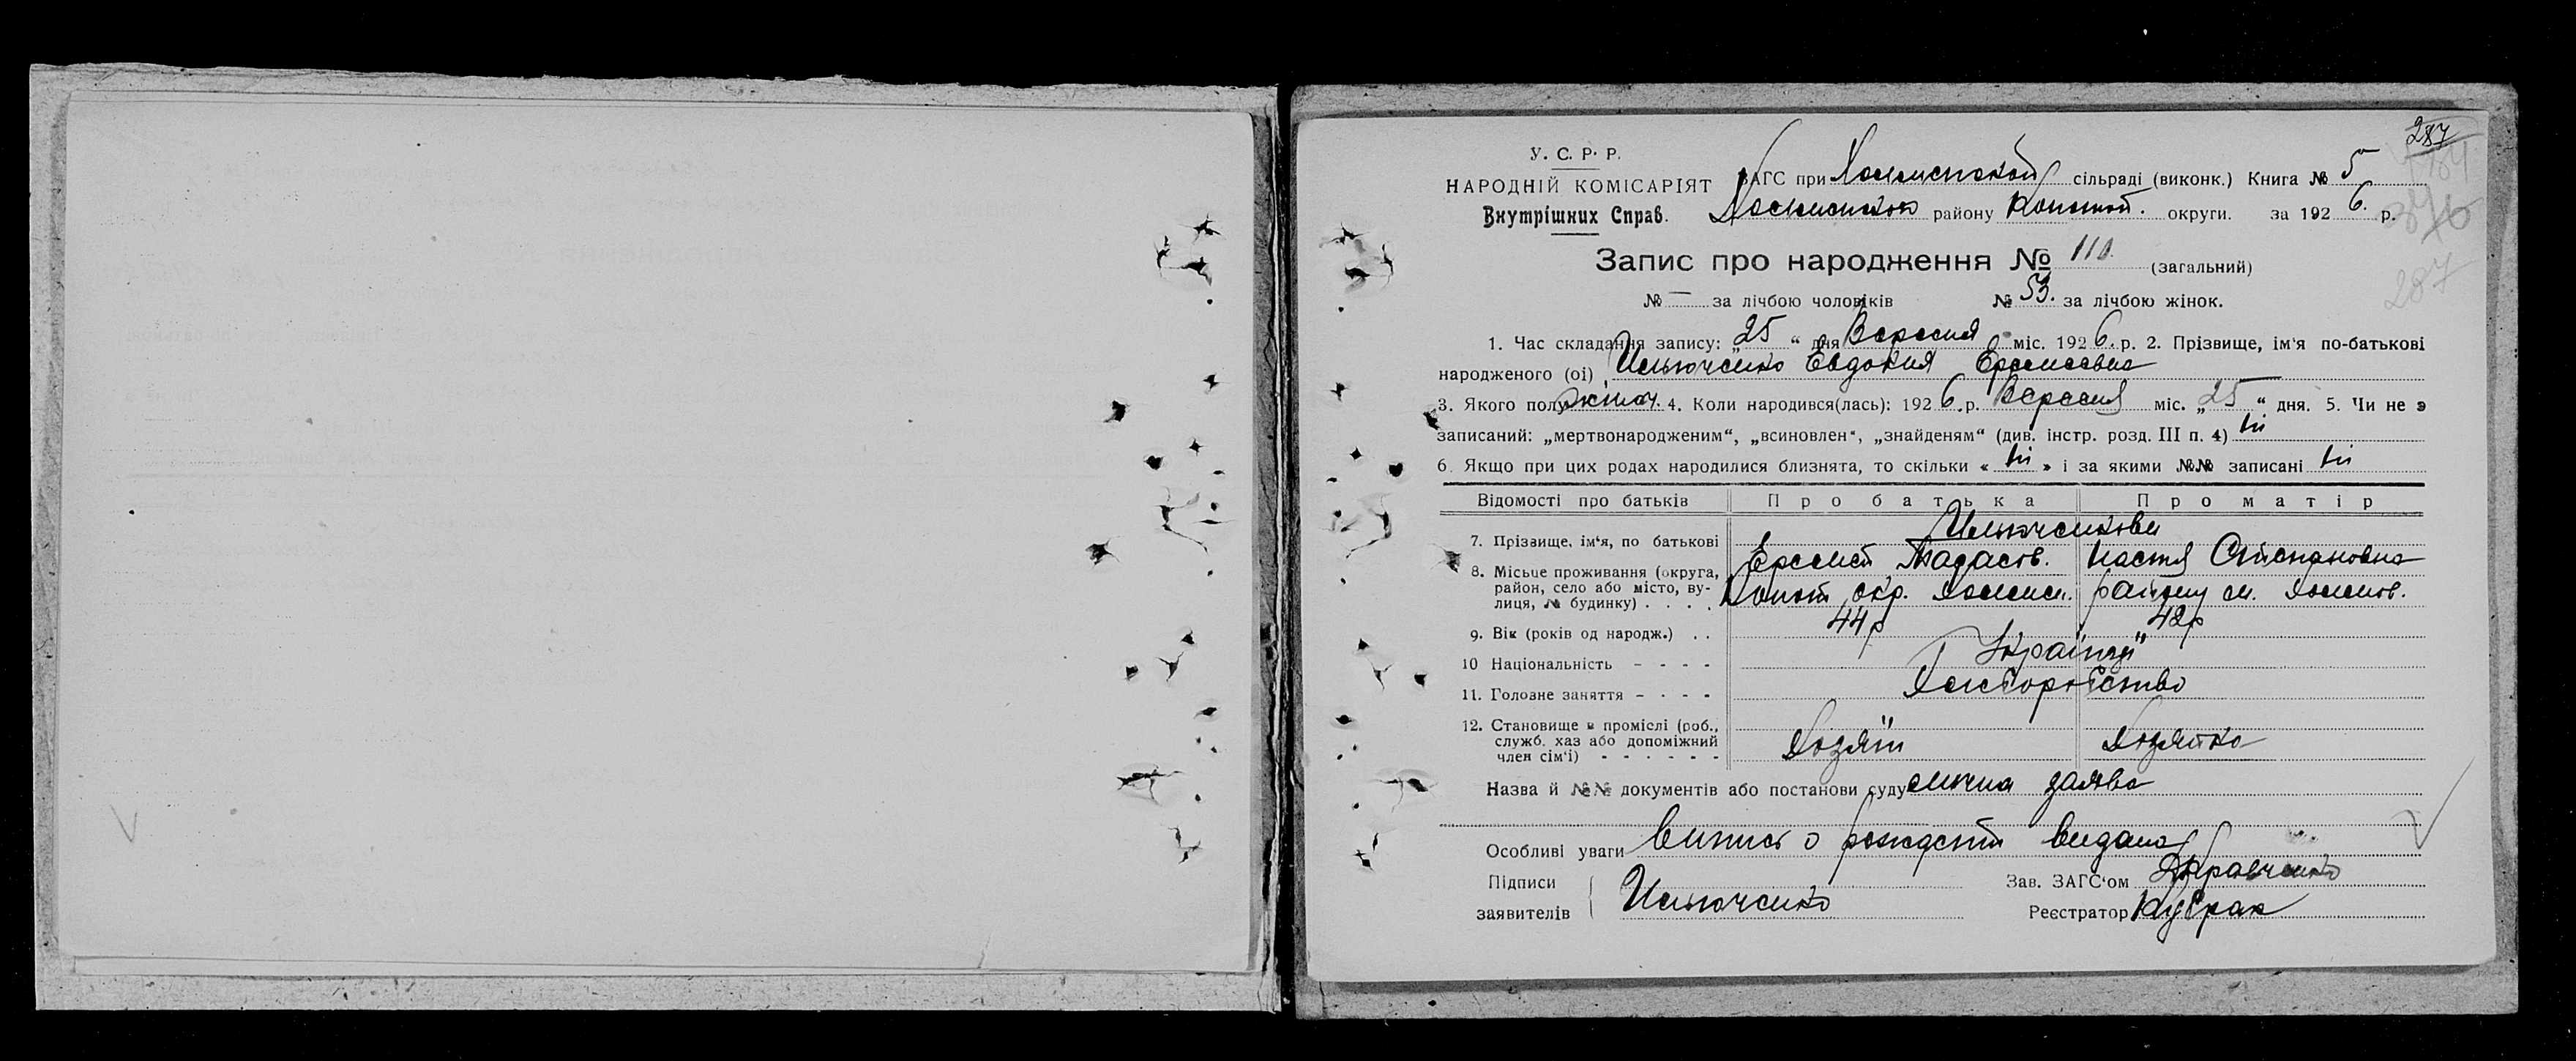 287
У. С. Р. Р.
НАРОДНІЙ КОМІСАРІЯТ
Внутрішних Справ.
ЗАГС при сільраді (виконк.) Книга № 5
району Коното́п. округи. за 1926 р.
Запис про народження № 110 (загальний)
№ — за лічбою чоловіків № 53. за лічбою жінок.
1. Час складання запису: „25“ дня Вересня міс. 1926. р. 2. Прізвище, ім‘я по-батькові
народженого (ої) Ильюченко Евдокия
3. Якого полу жіноч. 4. Коли народився(лась): 1926. р. Вересня міс. „25“ дня. 5. Чи не э
записаний: „мертвонародженим“, „всиновлен“, „знайденям“ (див. інстр. розд. III п. 4) ні
6. Якщо при цих родах народилися близнята, то скільки « ні » і за якими №№ записані ні
Відомості про батьків Про батька Про матір
Ильюченкови
7. Прізвище, ім‘я, по батькові Настя Степановна
8. Місьце проживання (округа, район, село або місто, вулиця, № будинку) Коноτ окр. району
9. Вік (років од народж.) 44р 42р
10 Національність Українці
11. Головне заняття Хлеборобство
12. Становище в проміслі (роб., служб. хаз або допоміжний член сім‘ї) Хозяїн Хозяйка
Назва й №№ документів або постанови суду злична заява
Особливі уваги Випись о рождении видана
Підписи заявителів Ильюченко
Зав. ЗАГС‘ом Кравченко
Реєстратор Кубрак